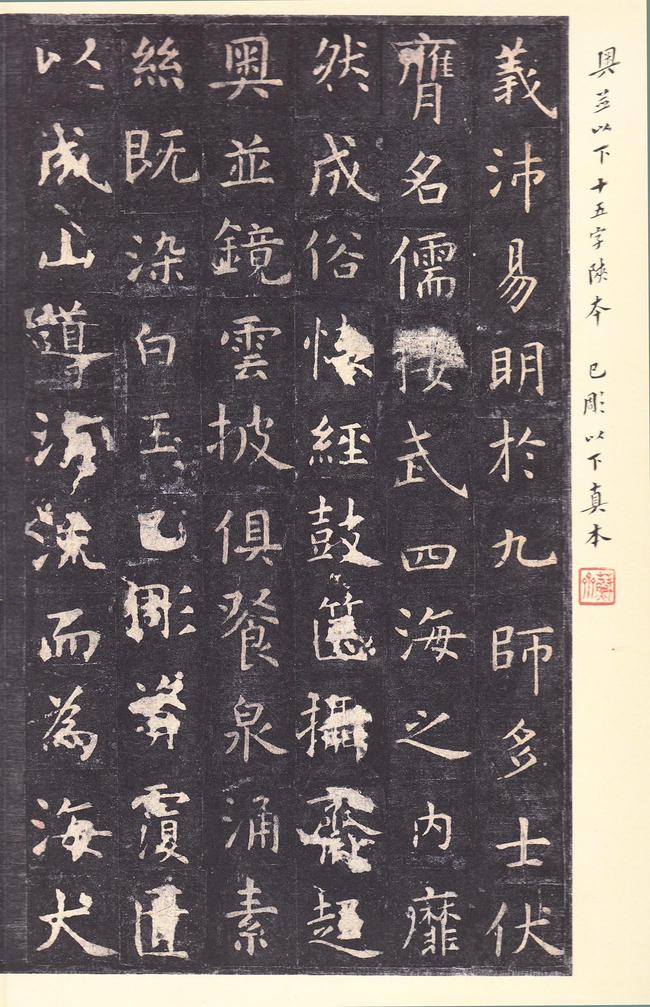 奧並以下十五字陝本 已彫以下真本
義沛易明於九師多士伏
膺名儒接武四海之內靡
然成俗懷經鼓篋攝齋超
奧並鏡雲披俱餐泉涌素
絲既染白玉已彫資覆匱
以成山導涓流而為海大